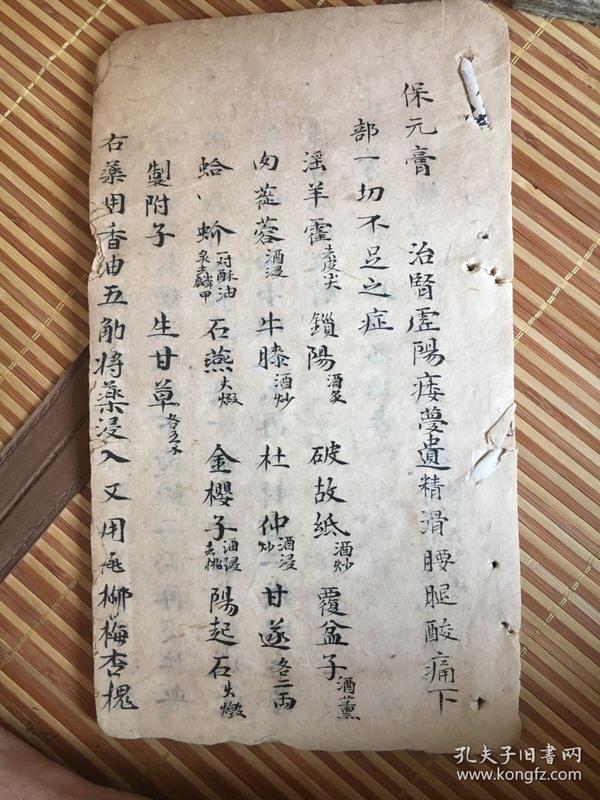 保元膏
治腎虛陽痿夢遺精滑腰腿酸痛下
部一切不足之症
淫羊霍去皮尖 鎖陽酒炙 破故紙酒炒 覆盆子酒薰
肉蓯蓉酒浸 牛膝酒炒 杜仲酒浸炒 甘遂各二両
蛤蚧一对酥油炙去麟甲 石燕火煅 金櫻子酒浸去桃 陽起石火煅
製附子 生甘草各五木
右藥用香油五觔将藥浸入又用 柳梅杏槐
孔夫子旧书网
www.kongfz.com